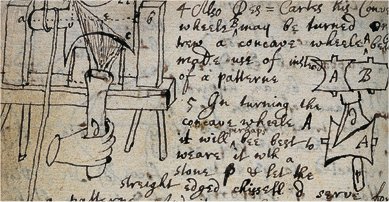 4 Also Des=Cartes his Con
wheele B may be turned
true a concave wheele A bei
made use of instead
of a patterne
5 In turning the
concave wheele A
it will perhaps bee best to
weare it wth a
stone p & let the
streight edged chissell d serve
a patterne
a
b
A
B
A